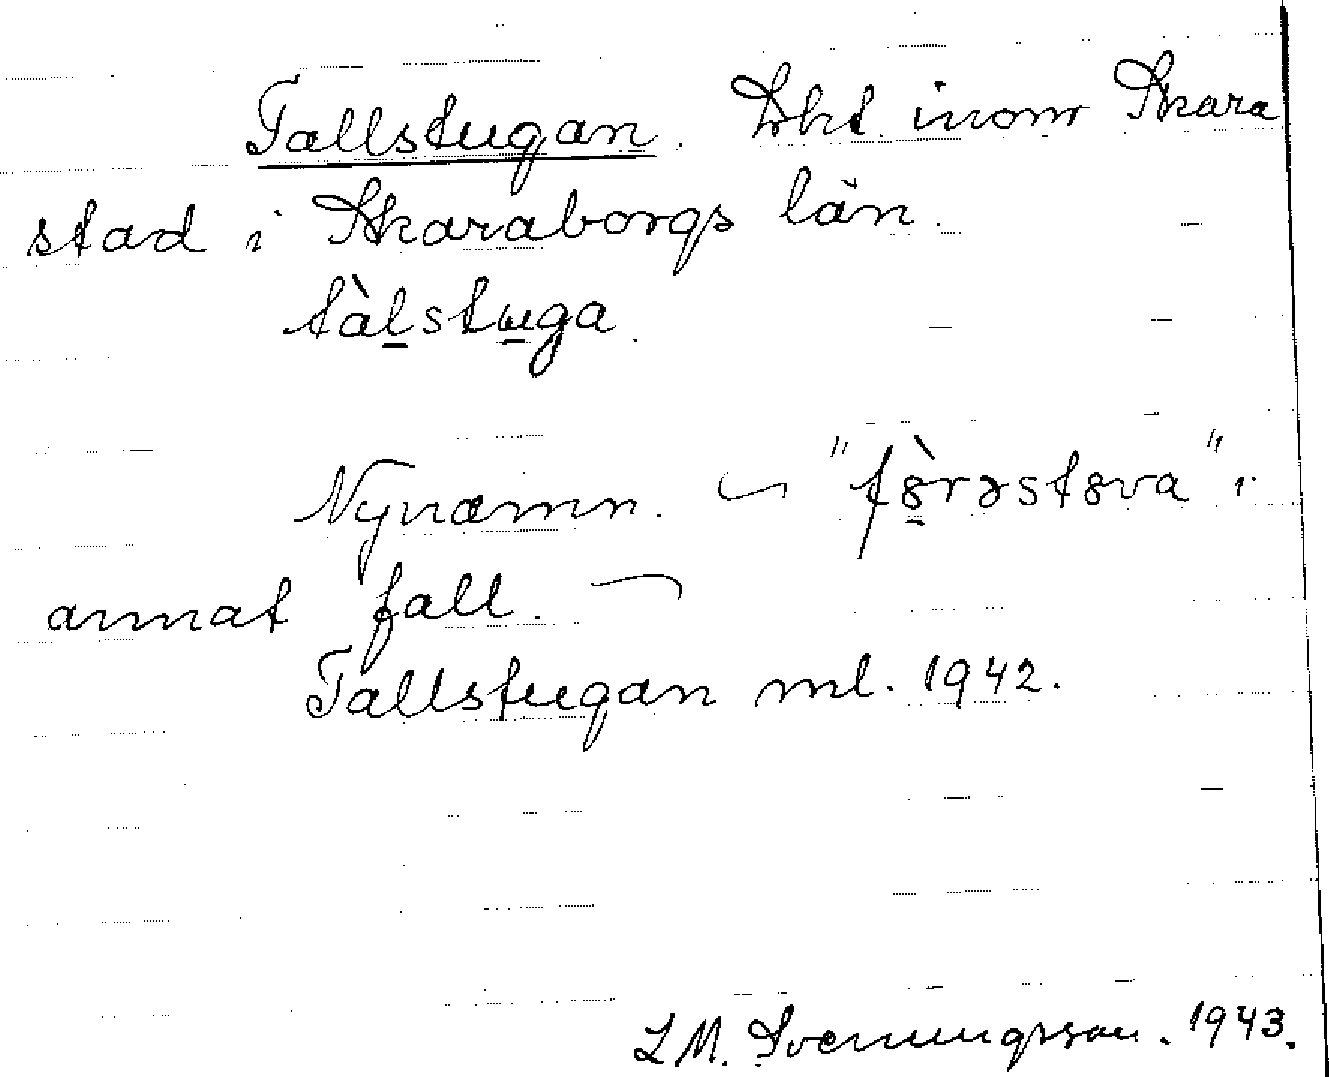 Tallstugan. Lht. inom Skara
stad i Skaraborgs län.
tàḻstu̱ga.
Nynamn. ⁓ "fȣ̱̀rəstȣva" i
annat fall.
Tallstugan ml. 1942.
L M. Svenungsson. 1943.